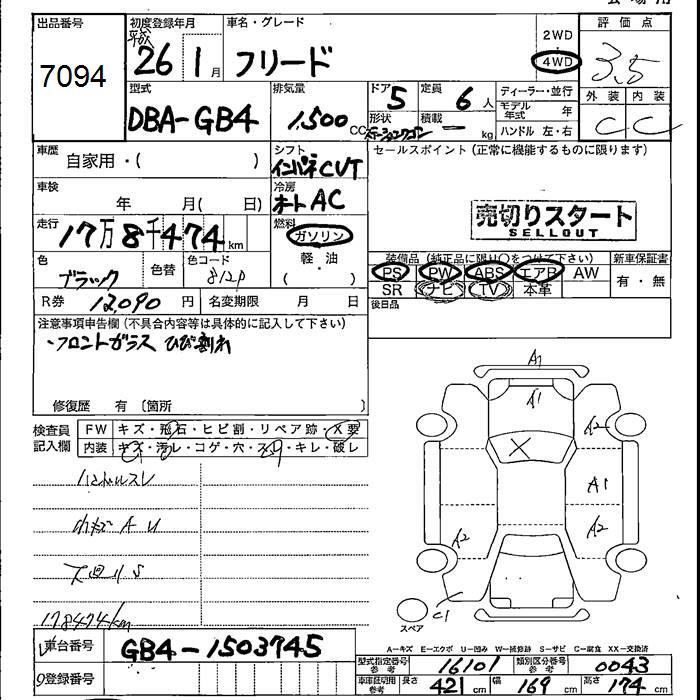 出品番号 初度登録年月 車名・グレード 評価点
7094 平成 26 1月 フリード 2WD 4WD 3.5
外装 内装
C C
型式 排気量 ドア 定員 ディーラー・並行
DBA-GB4 1,500 CC 5 6人 モデル年式 年
形状 積載 ハンドル 左・右
ステーションワゴン — kg
車歴 シフト セールスポイント(正常に機能するものに限ります)
自家用・( ) インパネCVT
車検 冷房
年 月( 日) オートAC
売切りスタート
SELLOUT
走行 燃料
17万8千474km ガソリン
軽・油
( )
色 色替 色コード
ブラック
装備品(純正品に限り○をつけて下さい) 新車保証書
PS PW ABS エアB AW 有・無
SR ナビ TV 本革
R券 12,090円 名変期限 月 日
後日品
注意事項申告欄(不具合内容等は具体的に記入して下さい)
・フロントガラス ひび割れ
修復歴 有〔箇所 〕
検査員記入欄 FW キズ・飛石・ヒビ割・リペア跡・X要
内装 キズ・汚レ・コゲ・穴・スレ・キレ・破レ
ハンドルスレ
178474km
A1
A1
A2
X
A1
A2
A2
C1
スペア
車台番号 GB4-1503745
登録番号
A―キズ E―エクボ U―凹み W―補修跡 S―サビ C―腐食 XX―交換済
型式指定番号 参考 16101 類別区分番号 参考 0043
車庫証明用 参考 長さ 421cm 幅 169cm 高さ 174cm